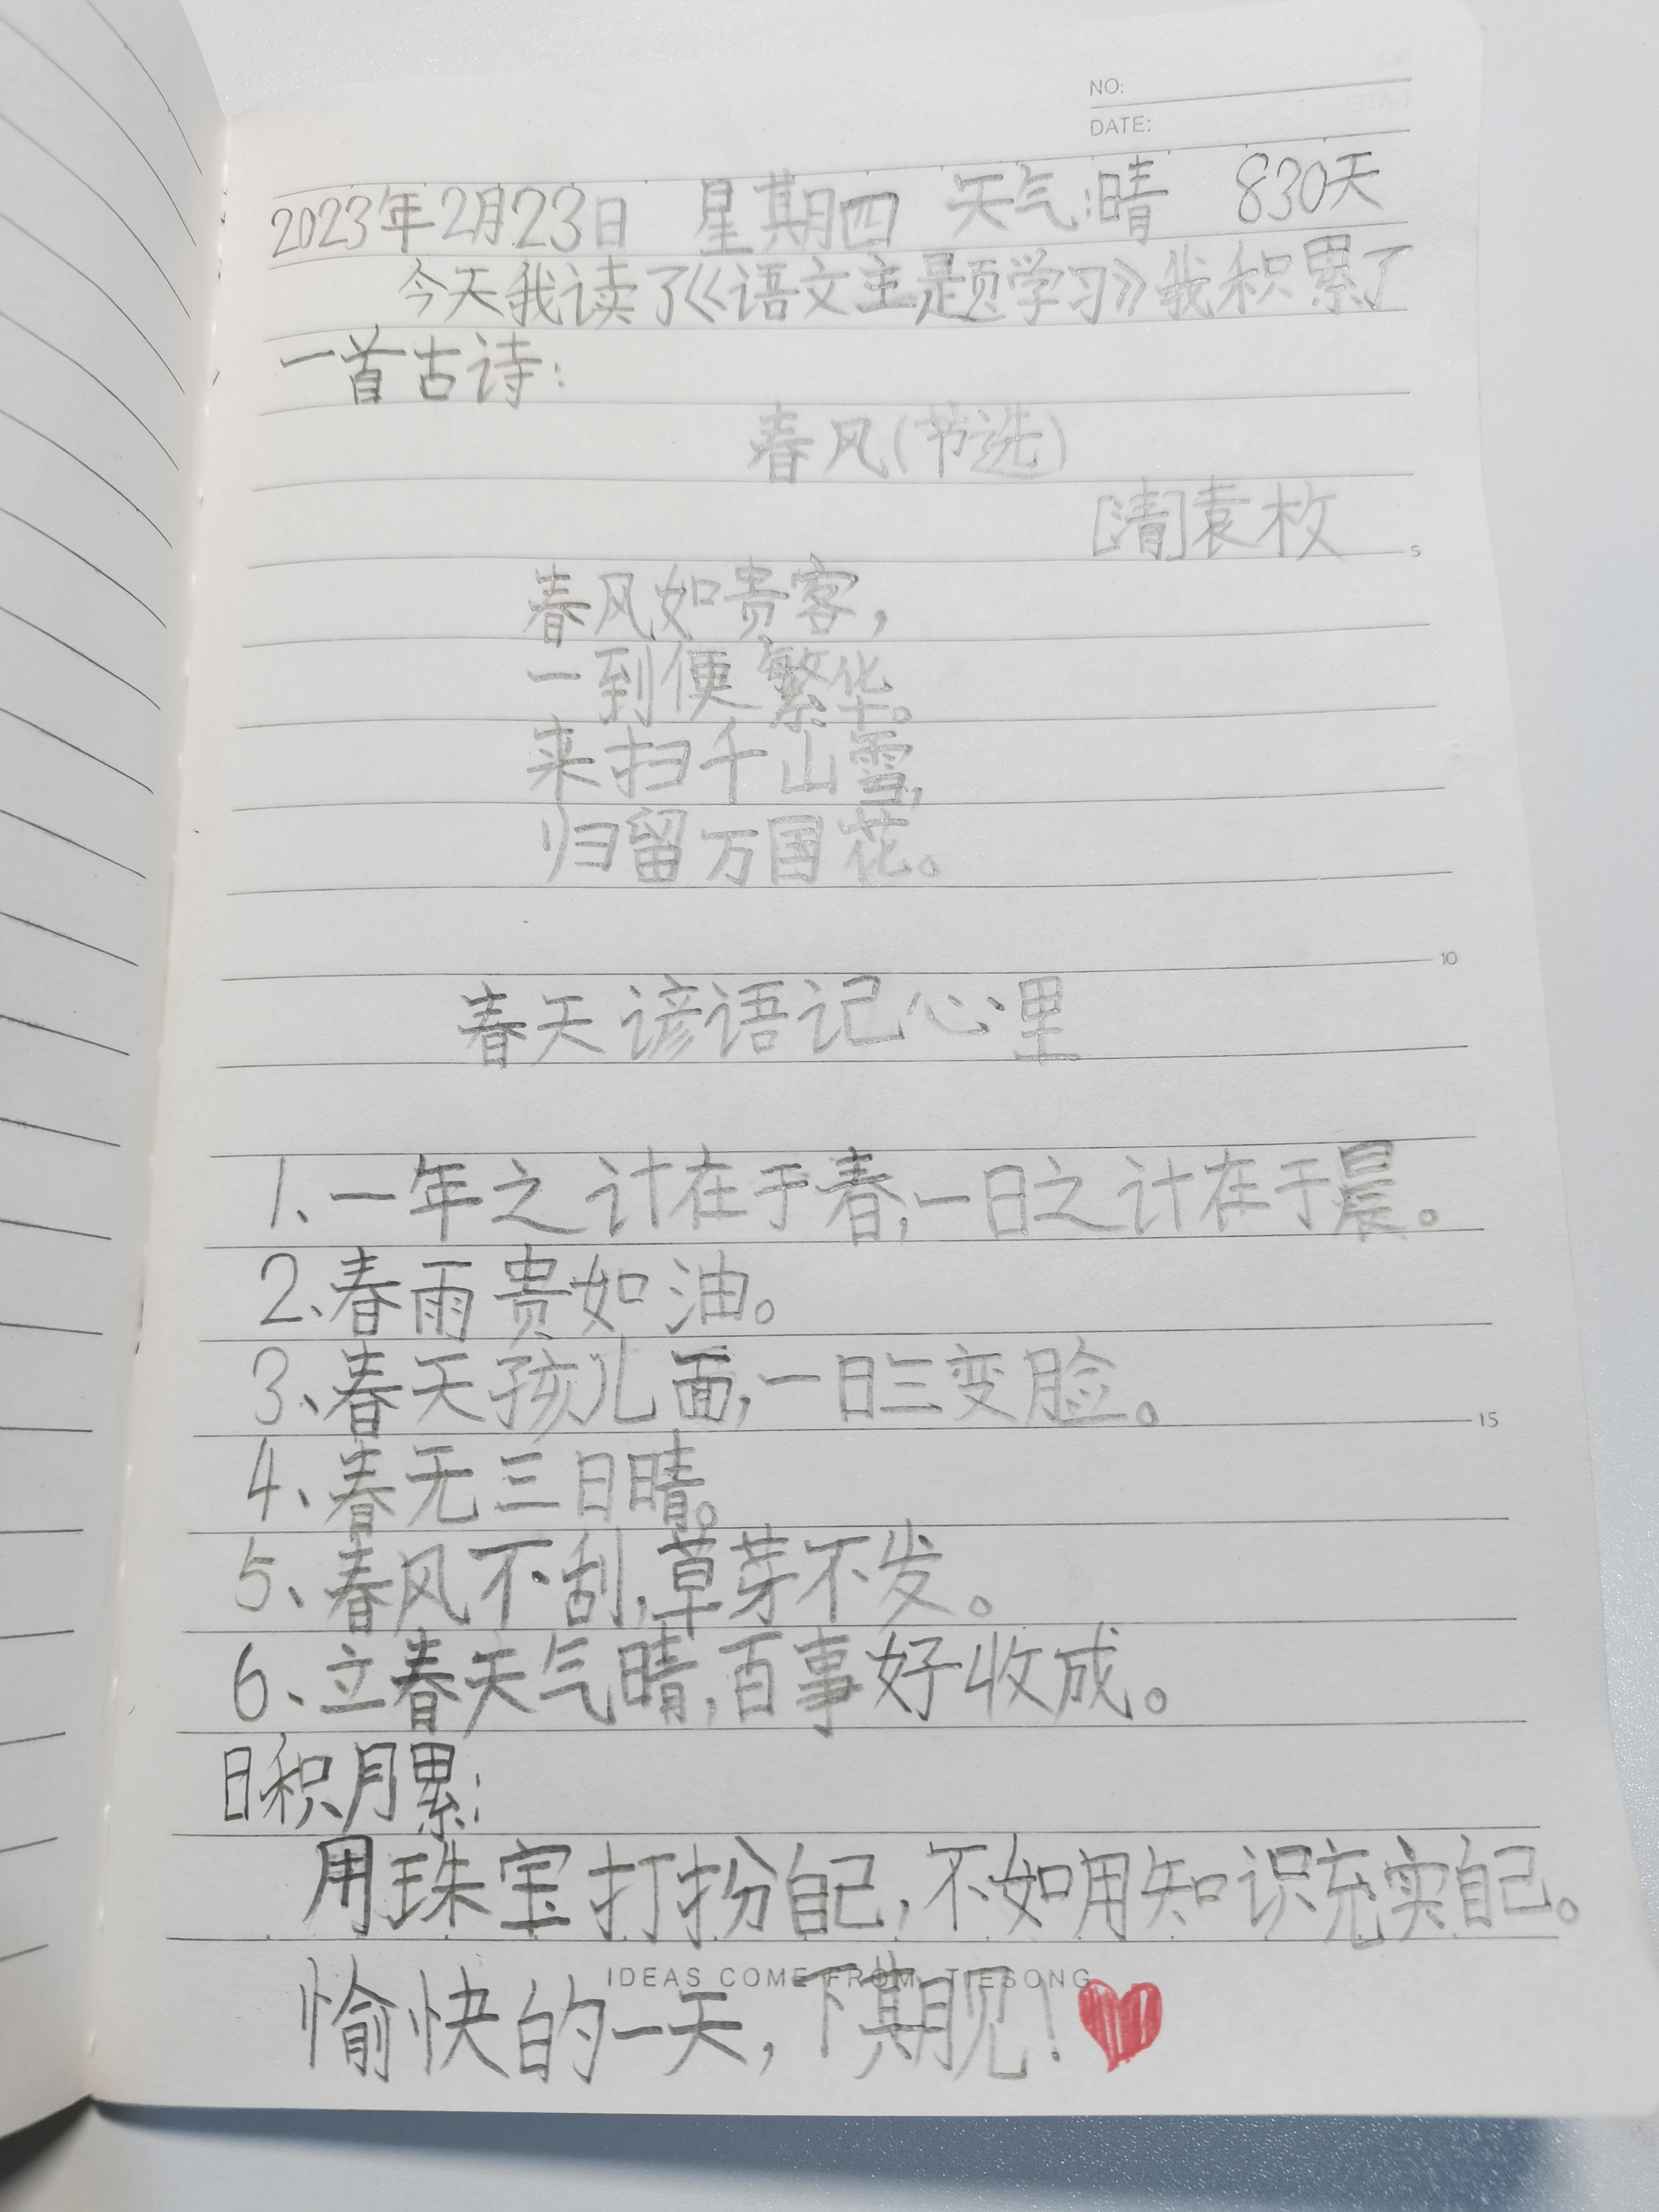 NO:
DATE:
2023年2月23日 星期四 天气:晴 830天
今天我读了《语文主题学习》我积累了
一首古诗:
春风(节选)
[清]袁枚
5
春风如贵客,
一到便繁华。
来扫千山雪,
归留万国花。
10
春天谚语记心里
1、一年之计在于春,一日之计在于晨。
2、春雨贵如油。
3、春天孩儿面,一日三变脸。
15
4、春无三日晴。
5、春风不刮,草芽不发。
6、立春天气晴,百事好收成。
日积月累:
用珠宝打扮自己,不如用知识充实自己。
IDEAS COME FROM TIESONG
愉快的一天,下期见!